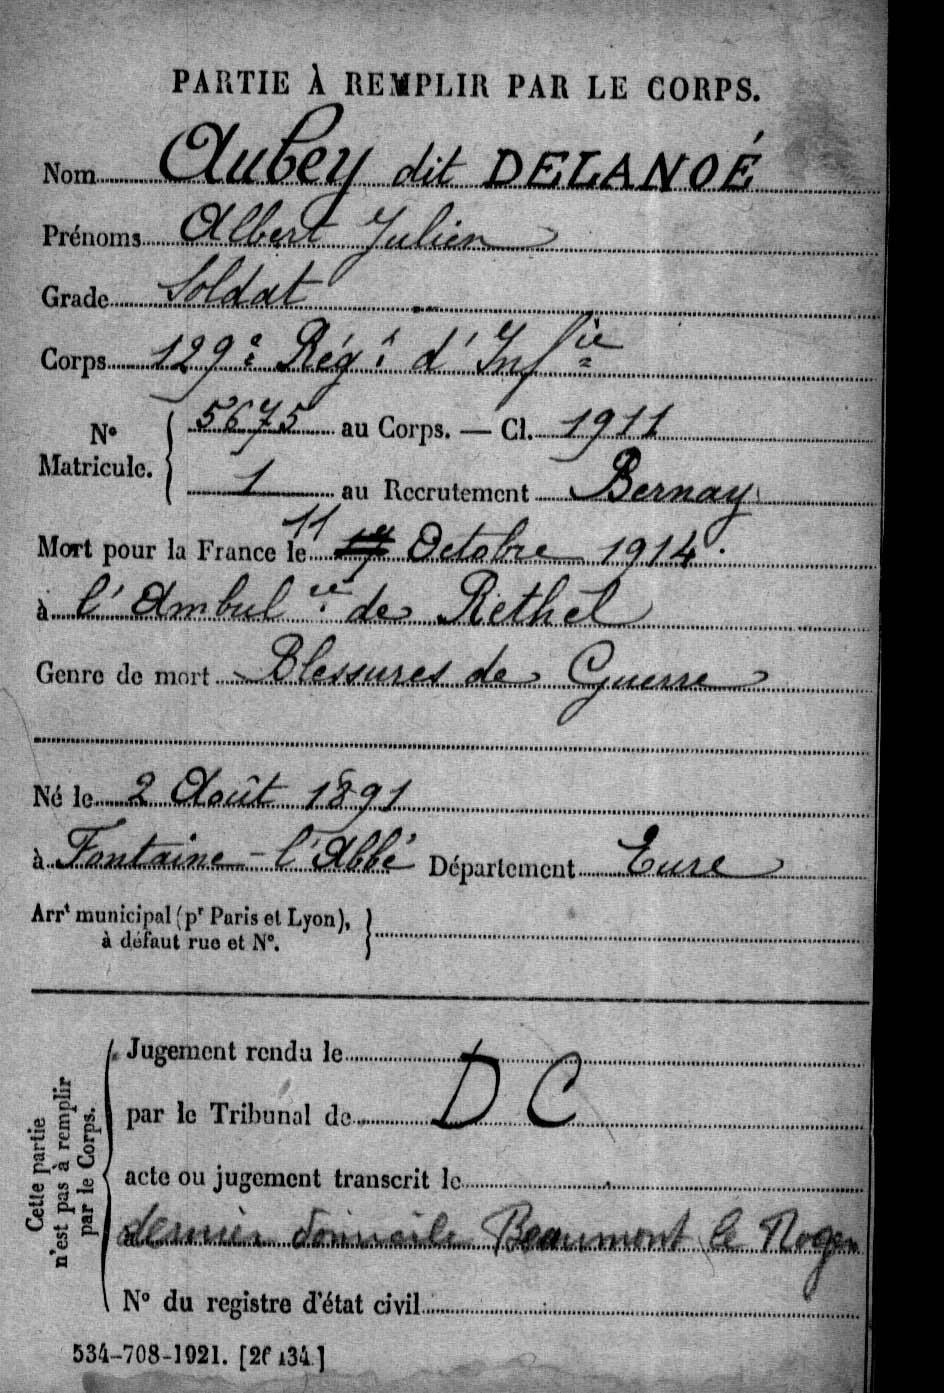 PARTIE À REMPLIR PAR LE CORPS.
Nom Aubey dit DELANOÉ
Prénoms Albert Julien
Grade Soldat
Corps 129e Régt d'Infie
No Matricule. { 5675 au Corps. — Cl. 1911
1 au Recrutement Bernay
11
Mort pour la France le 17 Octobre 1914.
à l'Ambulce de Rethel
Genre de mort Blessures de Guerre
Né le 2 Août 1891
à Fontaine-l'Abbé Département Eure
Arrt municipal (pr Paris et Lyon),
à défaut rue et No.
Cette partie
n'est pas à remplir
par le Corps.
Jugement rendu le
par le Tribunal de D C
acte ou jugement transcrit le
dernier domicile Beaumont le Roger
No du registre d'état civil
534-708-1921. [26434.]